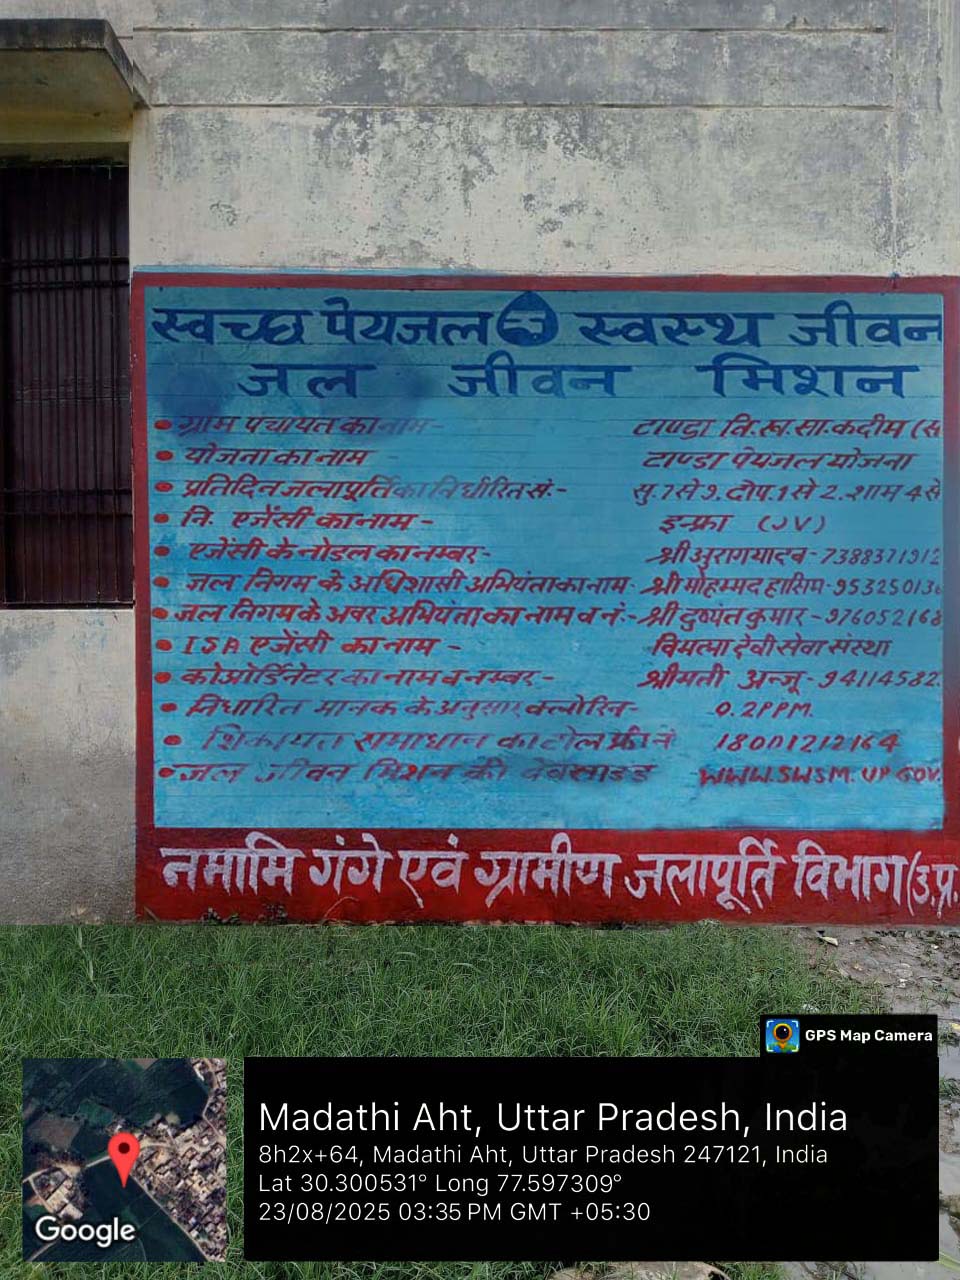 स्वच्छ पेयजल स्वस्थ जीवन
जल जीवन मिशन
• ग्राम पंचायत का नाम - टाण्डा वि.ख.सा.कदीम (स
• योजना का नाम - टाण्डा पेयजल योजना
• प्रतिदिन जलापूर्ति का निर्धारित सं.- सु.7 से 9. दोप.1 से 2. शाम 4 से
• नि. एजेंसी का नाम - इन्फ्रा (JV)
• एजेंसी के नोडल का नम्बर - श्री अुरागयादव - 7388371912
• जल निगम के अधिशासी अभियंता का नाम - श्री मोहम्मद हासिम - 953250136
• जल निगम के अवर अभियंता का नाम व नं:- श्री दुष्यंत कुमार - 976052168
• ISA एजेंसी का नाम - देवी सेवा संस्था
• कोऑर्डिनेटर का नाम व नम्बर - श्रीमती अन्जू - 94114582
• निर्धारित मानक के अनुसार क्लोरिन - 0.2PPM.
• शिकायत समाधान का टोल फ्री नं 18001212164
• जल जीवन मिशन की वेबसाइड WWW.SWSM.UP GOV.
नमामि गंगे एवं ग्रामीण जलापूर्ति विभाग (उ.प्र.
GPS Map Camera
Madathi Aht, Uttar Pradesh, India
8h2x+64, Madathi Aht, Uttar Pradesh 247121, India
Lat 30.300531° Long 77.597309°
23/08/2025 03:35 PM GMT +05:30
Google